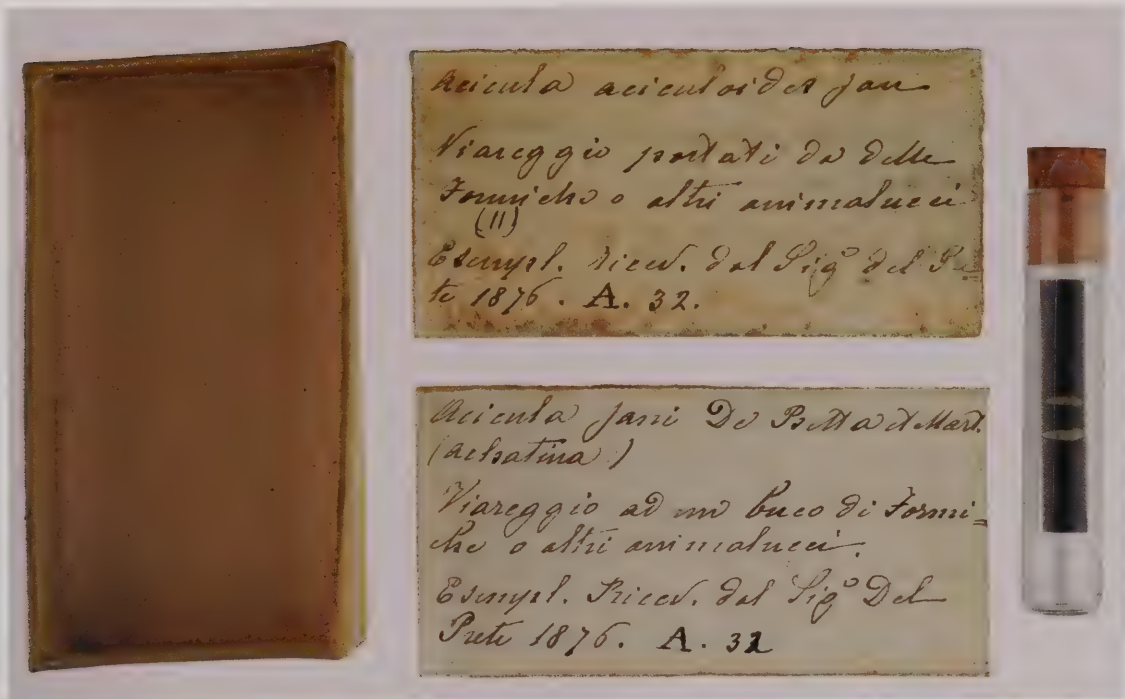 Acicula aciculoides Jan
Viareggio portati da delle
Formiche o altri animalucci
(11)
Esempl. Ricev. dal Sigº del Pre
te 1876. A. 32.
Acicula Jani De Betta et Mart.
(achatina)
Viareggio ad un buco di Formi=
che o altri animalucci.
Esempl. Ricev. dal Sigº Del
Prete 1876. A. 32